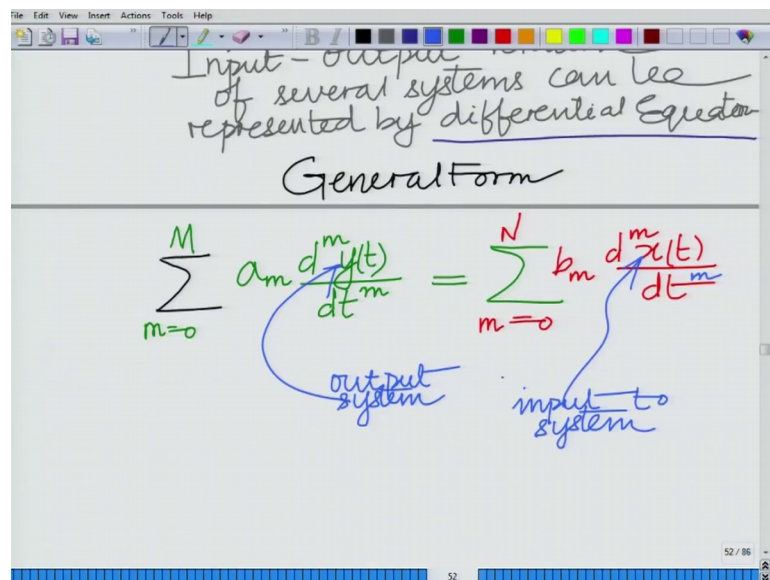 File Edit View Insert Actions Tools Help
B I
Input - output
of several systems can be
represented by differential Equation
General Form
M N
∑ a_m d^m y(t) / dt^m = ∑ b_m d^m x(t) / dt^m
m=0 m=0
output system
input to system
52 / 86
52